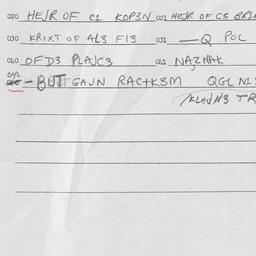 020 HE/R OF C1 KOP3N 021 HE/R OF CS BRL
030 KRIXT OF AL3 F13 031 —Q POL
040 OFD3 PLAJC3 041 NAZNAK
042 - BUT GAJN RACTK3M QGL NI
/KLAJN3 TR